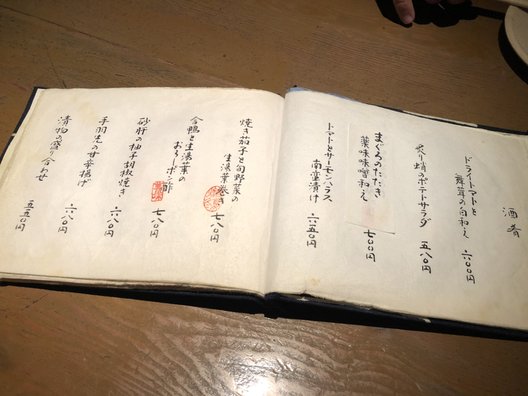 酒肴
ドライトマトと
舞茸の白和え 六〇〇円
炙り〆鯖のポテトサラダ 五八〇円
まぐろのたたき
薬味味噌和え 七〇〇円
トマトとサーモンハラス
南蛮漬け 六八〇円
焼き茄子と旬野菜の
生湯葉巻き 七八〇円
合鴨と生湯葉の
おろしポン酢 七八〇円
砂肝の柚子胡椒焼き 六八〇円
手羽先の甘辛揚げ 六八〇円
漬物の盛り合わせ 五五〇円